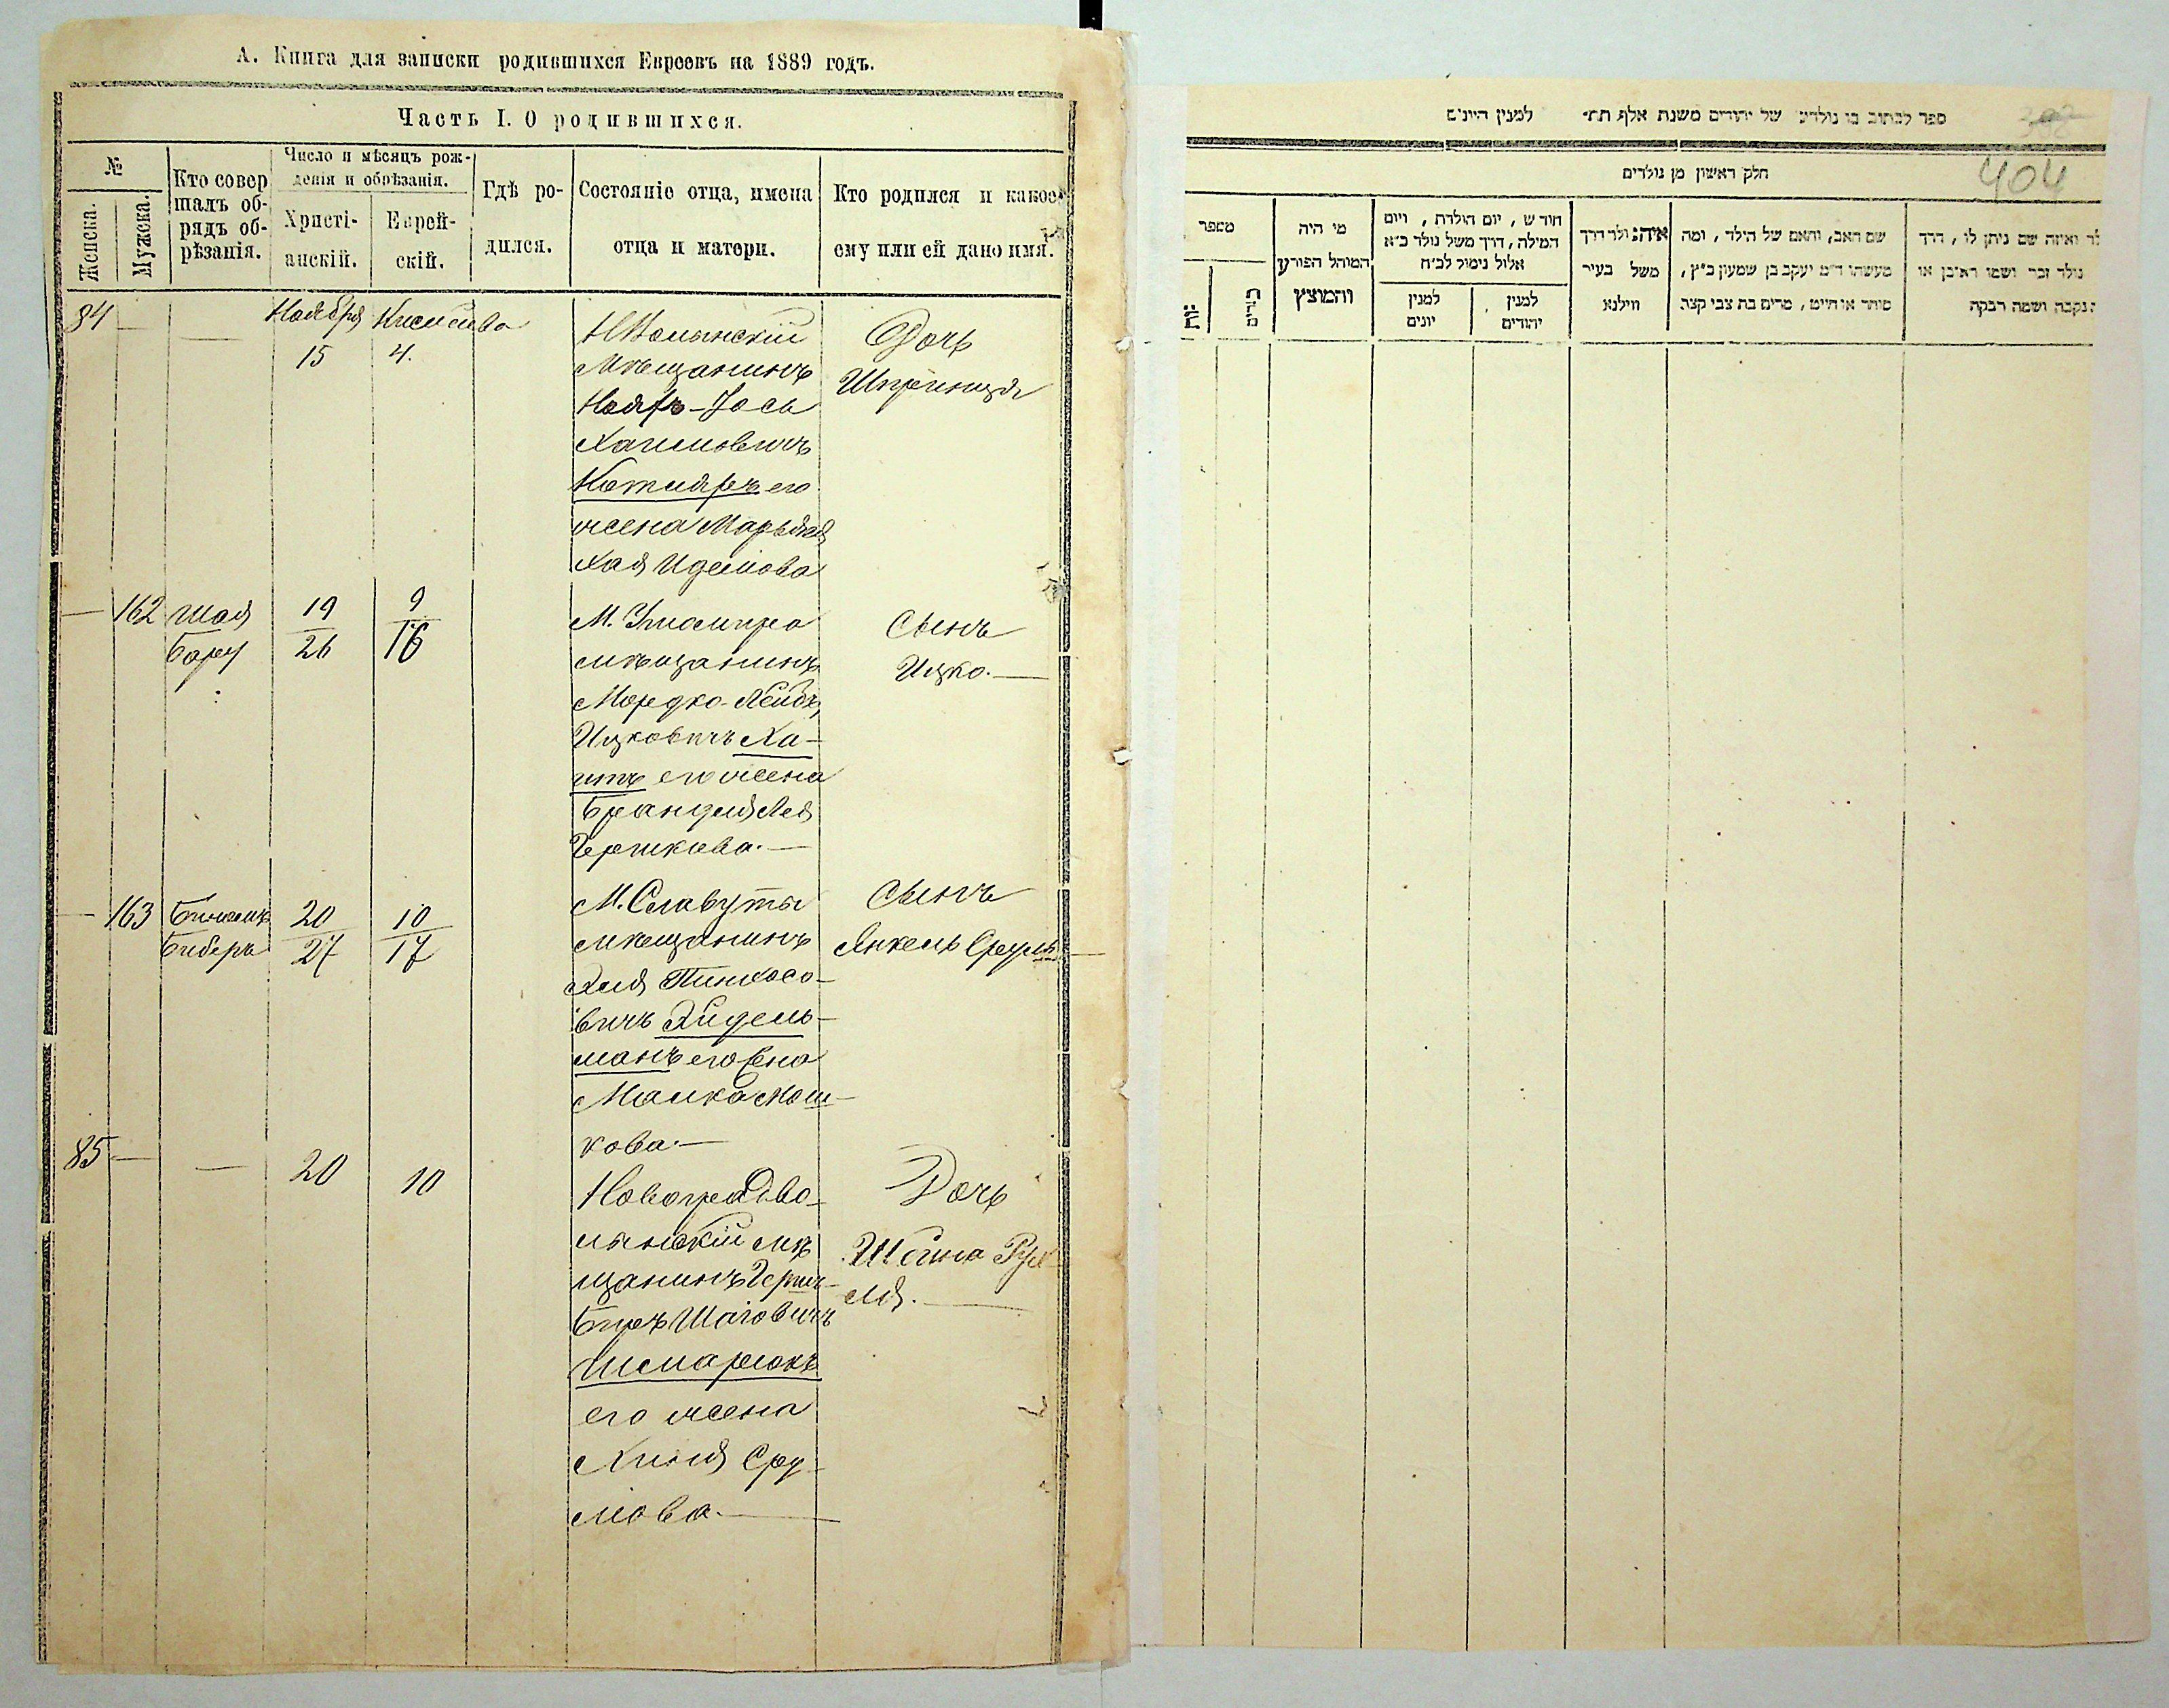 А. Книга для записки родившихся Евреевъ на 1889 годъ.
Часть I. О родившихся.
№
Женска.
Мужска.
Кто совер
шалъ об-
рядъ об-
рѣзанія.
Число и мѣсяцъ рож-
денія и обрѣзанія.
Христі-
анскій.
Еврей-
скій.
Гдѣ ро-
дился.
Состояніе отца, имена
отца и матери.
Кто родился и какое
ему или ей дано имя.
84 — — Ноября Кислева
15 4.
НВолынскій
Мѣщанинъ
Іось
Хаимовичъ
Котляръ его
жена
Хая
Дочь
Шпринця
— 162 Шая
Бару
19
26
9
16
М.
мѣщанинъ
Мордко-Лейбъ
Ицковичъ Ха-
итъ его жена
Брандля Лея
Гершкова. —
Сынъ
Ицко. —
— 163
Биберъ
20
27
10
17
М. Славуты
мѣщанинъ
Пинхосо-
вичъ Айдель-
манъ его жена
Малка Мош-
кова. —
Сынъ
Янкель Сруль —
85 — — 20 10
Новоградво-
лынскій мѣ
щанинъ Гершъ-
Беръ Шаіовичъ
Шмарюкъ
его жена
Хиня Сру-
лова. —
Дочь
Шейна Рух
ля. —
ספר לכתוב בו נולדים של יהודים משנת אלף תת׳ למנין היונים
404
חלק ראשון מן נולדים
מספר
מי היה
המוהל הפורע
והמוצץ
חודש , יום הולדת , ויום
המילה , דרך משל נולד כ״א
אלול נימול לכ״ח
למנין
יונים
למנין
יהודים
איה נולד דרך
משל בעיר
ווילנא
שם האב, והאם של הילד , ומה
מעשהו ד״מ יעקב בן שמעון כ״ץ ,
סוחר או חייט , מרים בת צבי קצב
לד ואיזה שם ניתן לו , דרך
נולד זכר ושמו ראובן או
נקבה ושמה רבקה